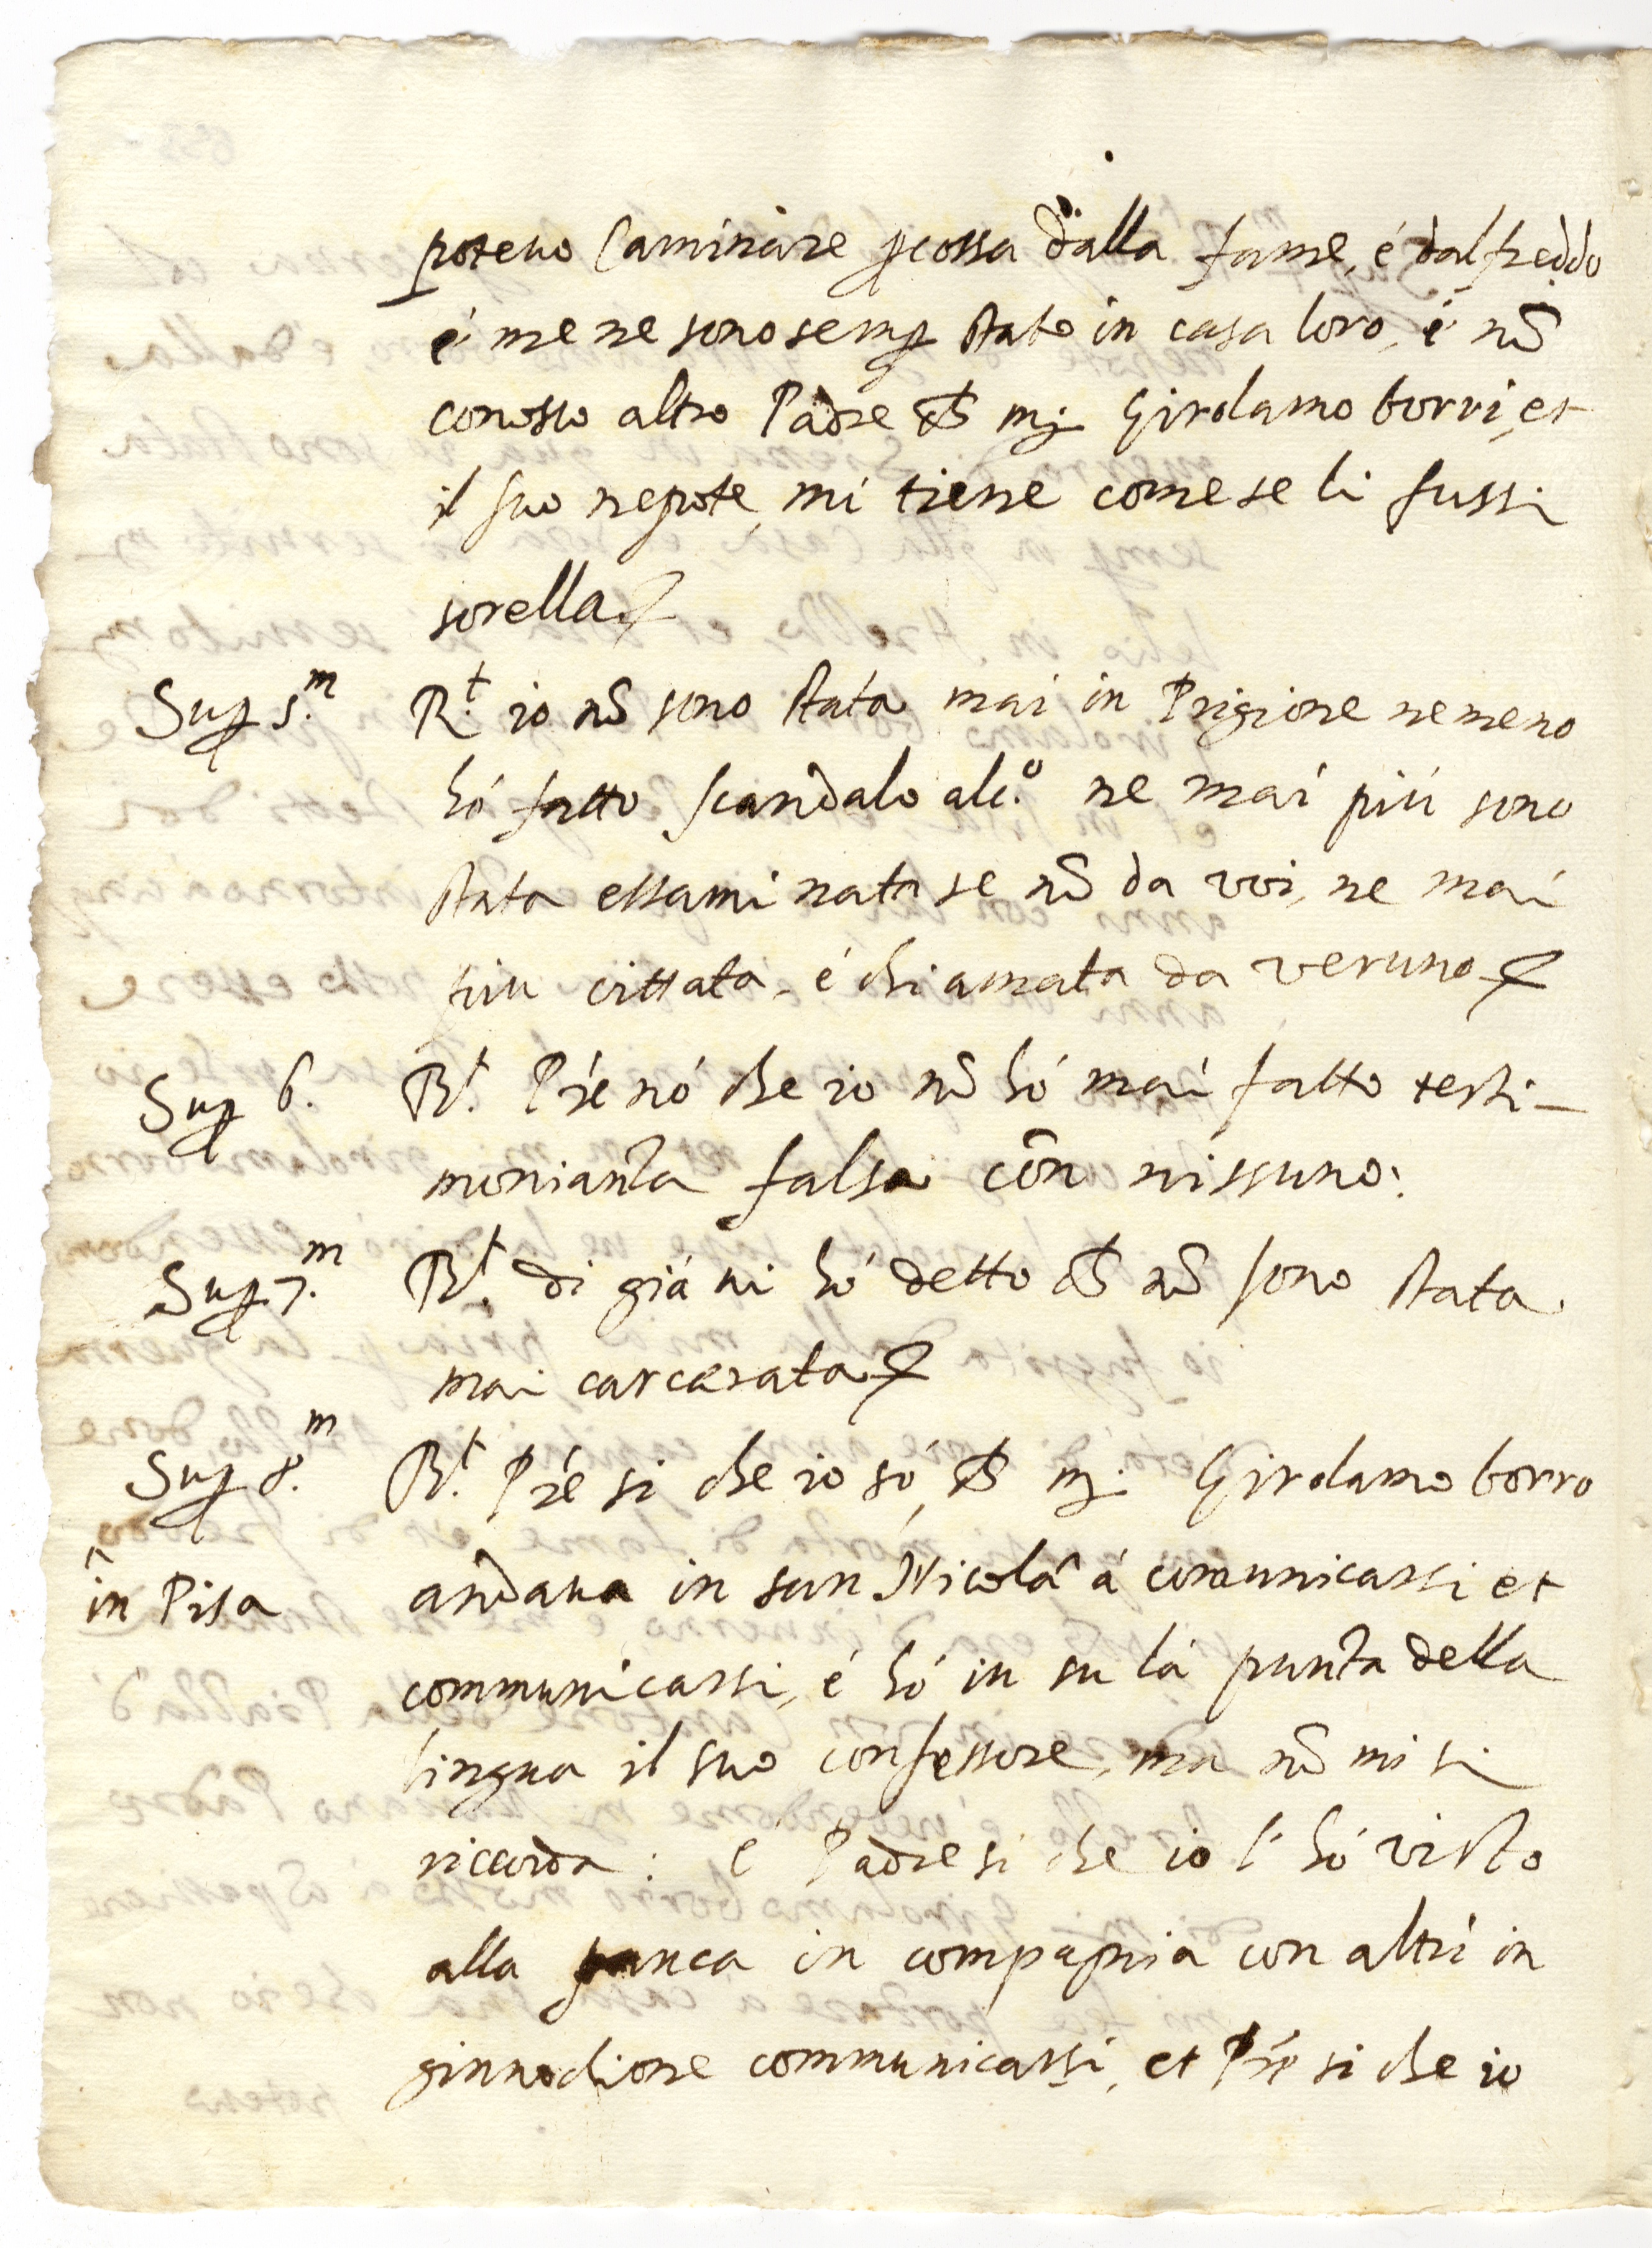 poteuo Caminare scossa dalla fame, é dal freddo
é me ne sono semp stato in casa loro, é nō
conosco altro Padre ch̄ mẓ Girolamo borri, et
il suo nepote, mi tiene come se li fussi
sorella
Sup 5.m R.t io nō sono stata mai in Prigione ne meno
hó fatto scandalo alc.o ne mai piú sono
stata essaminata se nō da voi, ne mai
piu cittata, é chiamata da veruno
Sup 6. R.t Pré nó che io nō hó mai fatto testi-
monianza falsa cōn nissuno:
Sup 7.m R.t di giá ui hó detto ch̄ nō sono stata
mai carcerata
Sup 8.m R.t Pré si che io só, ch̄ mẓ Girolamo borro
in Pisa andaua in san Nicolá á comunicarsi et
communicarsi, é hó in su lá punta della
lingua il suo confessore, ma nō mi si
riccorda: é Padre si che io l'hó visto
alla panca in compagnia con altri in
ginnochione communicarsi, et Pré si che io